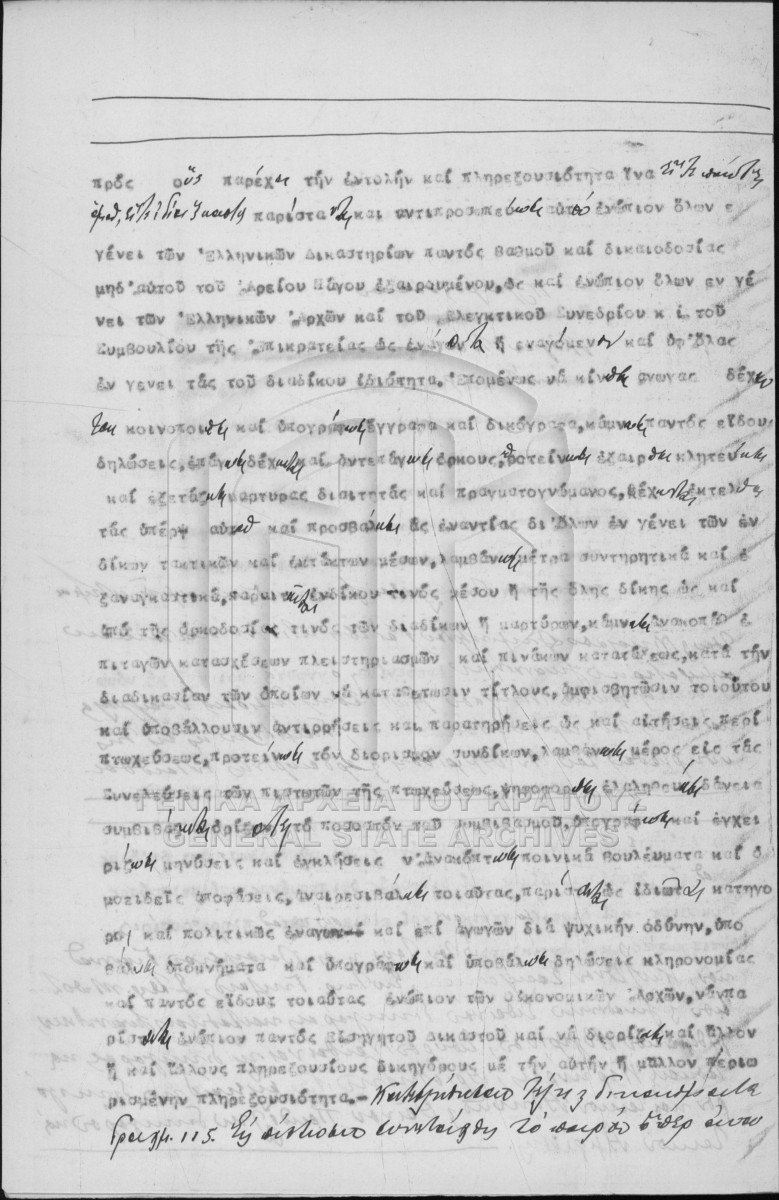 πρός οὕς παρέχει τήν ἐντολήν καί πληρεξουσιότητα ἵνα εἴτε
παρίστανται καί αντιπροσωπεύωσι αὐτό ἐνώπιον ὅλων ε
γένει τῶν Ἑλληνικῶν Δικαστηρίων παντός βαθμοῦ καί δικαιοδοσίας
μηδ'αὐτοῦ τοῦ Ἀρείου Πάγου ἐξαιρουμένου,ὡς καί ἐνώπιον ὅλων εν γέ
νει τῶν Ἑλληνικῶν Ἀρχῶν καί τοῦ Ἐλεγκτικοῦ Συνεδρίου κ ί τοῦ
Συμβουλίου τῆς Ἐπικρατείας ὡς ἐνάγοντα ἤ εναγόμενον καί ὑφ'ὅλας
ἐν γενει τάς τοῦ διαδίκου ἰδιότητα.Ἑπομένως νά κινῶσι αγωγας δέχων
ται κοινοποιῶσι καί ὑπογράφωσι ἔγγραφα καί δικόγραφα,κάμνωσι παντός εἴδους
δηλώσεις,ἐπάγωσι δέχωνται καί ἀντεπάγωσι ὅρκους,προτείνωσι ἐξαιρῶσι κλητεύωσι
καί ἐξετάζωσι μάρτυρας διαιτητάς καί πραγματογνώμονας,δέχωνται ἐκτελῶσι
τάς ὑπέρ αὐτοῦ καί προσβάλωσι ἄς ἐναντίας δι'ὅλων ἐν γένει τῶν ἐν
δίκων τακτικῶν καί ἐκτάκτων μέσων,λαμβάνωσι μέτρα συντηρητικά καί ἐ
ξαναγκαστικά,παραιτῶνται ἐνδίκου τινός μέσου ἤ τῆς ὅλης δίκης ὡς καί
ἀπό τῆς ὁρκοδοσίας τινός τῶν διαδίκων ἤ μαρτύρων,κάμνωσι ἀνακοπάς ἐ
πιταγῶν κατασχέσεων πλειστηριασμῶν καί πινάκων κατατάξεως,κατά τήν
διαδικασίαν τῶν ὁποίων νά καταθέτωσιν τίτλους,ἀμφισβητῶσιν τοιούτου
καί ὑποβάλλουσιν ἀντιρρήσεις καί παρατηρήσεις ὡς καί αἰτήσεις περί
πτωχεύσεως,προτείνωσι τόν διορισμόν συνδίκων,λαμβάνωσι μέρος εἰς τάς
Συνελεύσεις τῶν πιστωτῶν τῆς πτωχεύσεως,ψηφοφορῶσι ἐλαληθεύωσι δάνεια
συμβιβάζωσι ὁρίζωσι τό ποσοστόν τοῦ συμβιβασμοῦ,ὑπογράφωσι καί ἐγχει
ρίζωσι μηνύσεις καί ἐγκλήσεις ν'ἀνακόπτωσι ποινικά βουλεύματα καί ὁ
μοειδεῖς ἀποφάσεις,ἀναιρεσιβάλωσι τοιαύτας,παρίστανται ὡς ἰδιῶται κατηγο
ροι καί πολιτικῶς ἐναγων καί ἐπί ἀγωγῶν διά ψυχικήν ὀδύνην,ὑπο
βάλωσι ὑπομνήματα καί ὑπογράφωσι καί ὑποβάλωσι δηλώσεις κληρονομίας
καί παντός εἴδους τοιαύτας ἐνώπιον τῶν Οἰκονομικῶν Ἀρχῶν,νά παρα
ρίστανται ἐνώπιον παντός Εἰσηγητοῦ Δικαστοῦ καί νά διορίζωσι καί ἄλλον
ἤ καί ἄλλους πληρεξουσίους δικηγόρους μέ τήν αὐτήν ἤ μᾶλλον περιω
ρισμένην πληρεξουσιότητα.-
Δραχμ. 115. Εἰς πίστωσιν συνετάχθη τό παρόν ὅπερ
ΓΕΝΙΚΑ ΑΡΧΕΙΑ ΤΟΥ ΚΡΑΤΟΥΣ
GENERAL STATE ARCHIVES